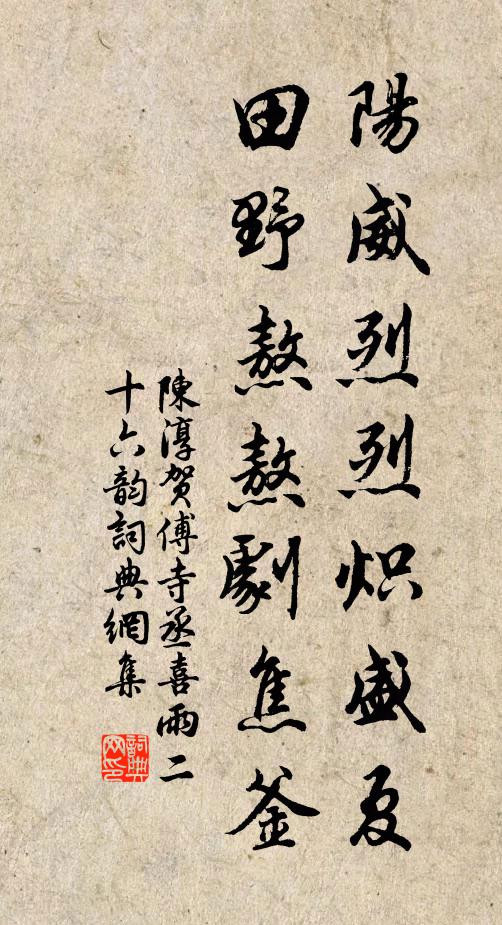 陽威烈烈炽盛夏
田野熬熬劇焦釜
陳淳賀傅寺丞喜雨二
十六韵詞典網集
詞典
网印